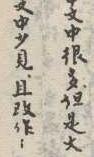 文中很多，但是大
文中少見，且改作：